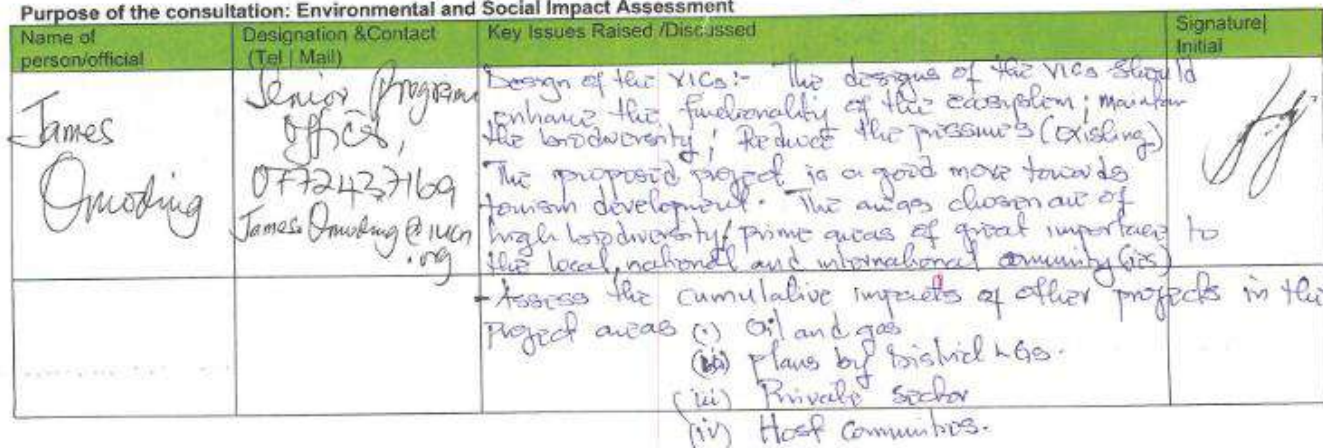 Purpose of the consultation: Environmental and Social Impact Assessment
Name of person/official
Designation &Contact (Tel | Mail)
Key Issues Raised /Discussed
Signature| Initial
James
Omoding
Senior Program
Officer,
0772437169
James.Omoding@iucn
.org
Design of the VICs:- The designs of the VICs should
enhance the functionality of the ecosystem; maintain
the biodiversity; Reduce the pressures (existing)
The proposed project is a good move towards
tourism development. The areas chosen are of
high biodiversity/prime areas of great importance to
the local, national and international community(ies)
- Assess the cumulative impacts of other projects in the
project areas (i) Oil and gas
(ii) plans by District LGs.
(iii) Private Sector
(iv) Host Communities.